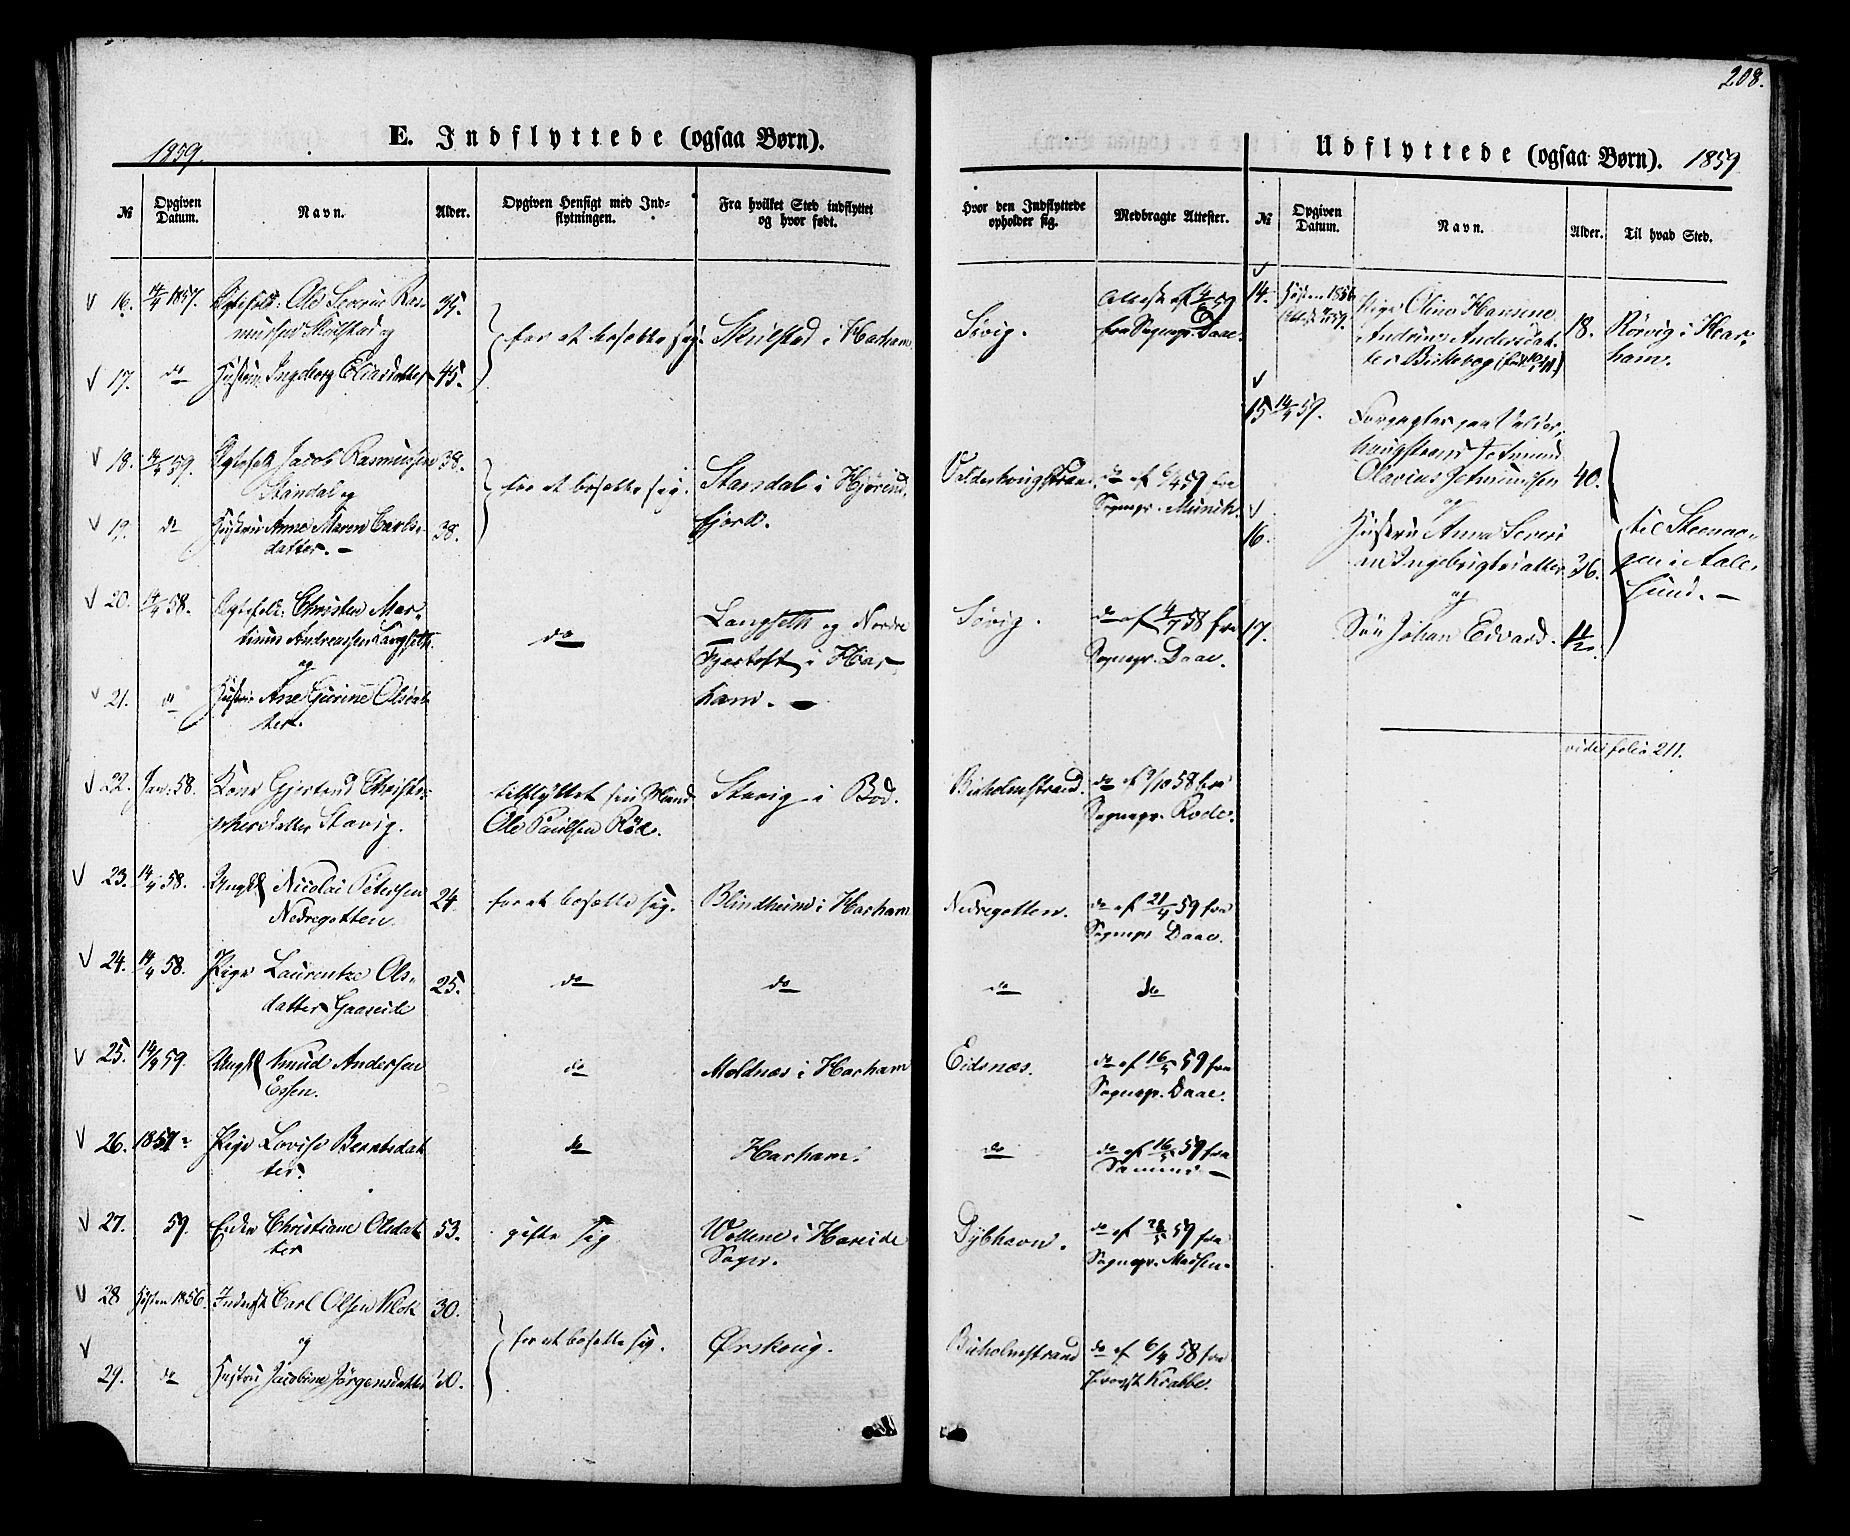 208.
1859.
E. Indflyttede (ogsaa Børn).
№
Opgiven Datum.
Navn.
Alder.
Opgiven Hensigt med Ind-
flytningen.
Fra hvilket Sted indflyttet
og hvor født.
Hvor den Indflyttede
opholder sig.
Medbragte Attester.
16. 14/4 1857. Ægtefolk: Ole Severin Ras- 35.
mussen Skulstad og
for at bosætte sig. Skulstad i Harham Søvig. Attest af 4/6 59
fra Sognepr. Daae.
17. do Hustru Ingeborg Eliasdatter 45.
18. 14/4 59. Ægtefolk Jacob Rasmussen 38.
Standal og
for at bosætte sig. Standal i Hjørend-
fjord.
Valderhougstrand do af 6/4 59 fra
Sognepr. Münch.
19. do Hustru Anne Maren Carls- 38.
datter. —
20. 14/4 58. Ægtefolk: Christen Mar-
tinus Andreassen Langseth
og
do
Langseth og Nordre
Fjertoft i Har-
ham. —
Søvig. do af 4/7 58 fra
Sognepr. Daae.
21. do Hustru Ane Gurine Olsdat-
ter.
22. Jan. 58. Kone Gjertrud Christo-
phersdatter Stavig.
tilflyttet sin Mand
Ole Paulsen Röe.
Stavig i Bod.
Buholmstrand. do af 9/10 58 fra
Sognepr. Rode.
23. 14/4 58. Ungk. Nicolai Petersen
Nedregotten.
24 for at bosætte sig. Blindheim i Harham
Nedregotten. do af 21/4 59 fra
Sognepr Daae.
24. 14/4 58. Pige Laurentze Ols-
datter Gaaseide
25. do do do do
25. 14/4 59. Ungk. Knud Andersen
Essen.
do Moldnæs i Harham
Eidsnæs. do af 16/5 59 fra
Sognepr. Daae.
26. 1857 Pige Lovise Berntsdat-
ter.
do Harham. do do af 16/5 59 fra
Samme —
27. 59. Enke Christiane Olsdat- 53.
ter
gifte sig
i Hareide
Sogn.
Dybhavn. do af 28/5 59 fra
Sognepr. Madsen.
28 Høsten 1856. Inderst Carl Olsen Klok 30.
og
for at bosætte sig. Ørskoug. Buholmstrand do af 6/4 58 fra
Provst Krabbe.
29. do Hustru Jacobine Jørgensdatter 30.
Udflyttede (ogsaa Børn). 1859
№
Opgiven
Datum.
Navn.
Alder.
Til hvad Sted.
14. Høsten 1856 Pige Oline Hansine
Andrine Andersdat-
ter Birkevog
18. Rörvig i Har-
ham.
15 14/4 59. Forpagter paa Valder-
hougstrand Jetmund
Olavius Jetmundsen 40.
og
16. Hustru Anna Severi-
ne Ingebrigtsdatter 36.
og
til Steenvaa-
gen i Aale-
sund. —
17. Søn Johan Edvard. 1 1/2.
vide folio 211.